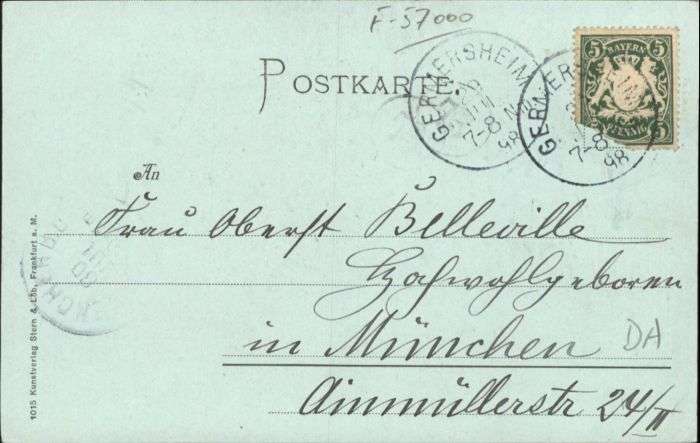 F-57000
5 BAYERN 5
5 PFENNIG 5
GERMERSHEIM
7-8 NM
98
GERMERSHEIM
7-8
98
POSTKARTE.
An
Frau Oberst Belleville
Hochwohlgeboren
in München
DA
Ainmüllerstr 24/II
1015 Kunstverlag Stern & Löb, Frankfurt a. M.